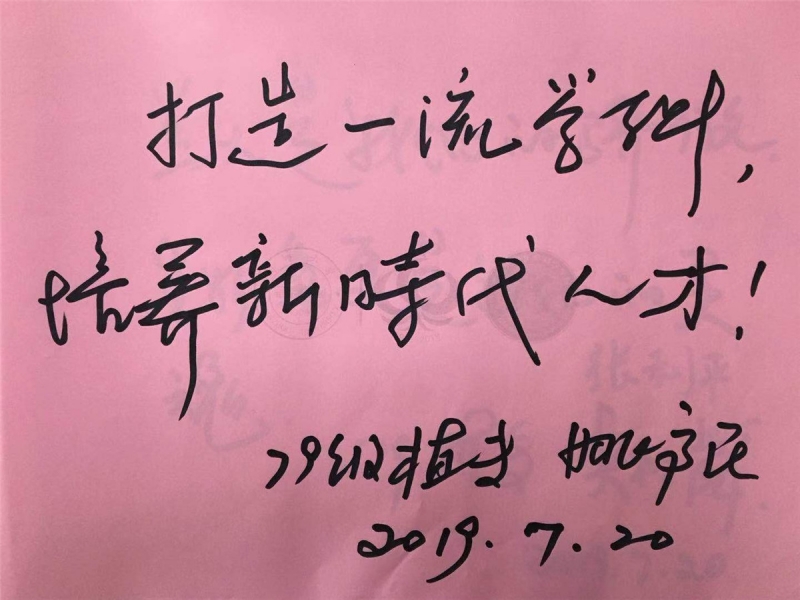 打造一流学科,
培养新時代人才!
79级植
2019.7.20